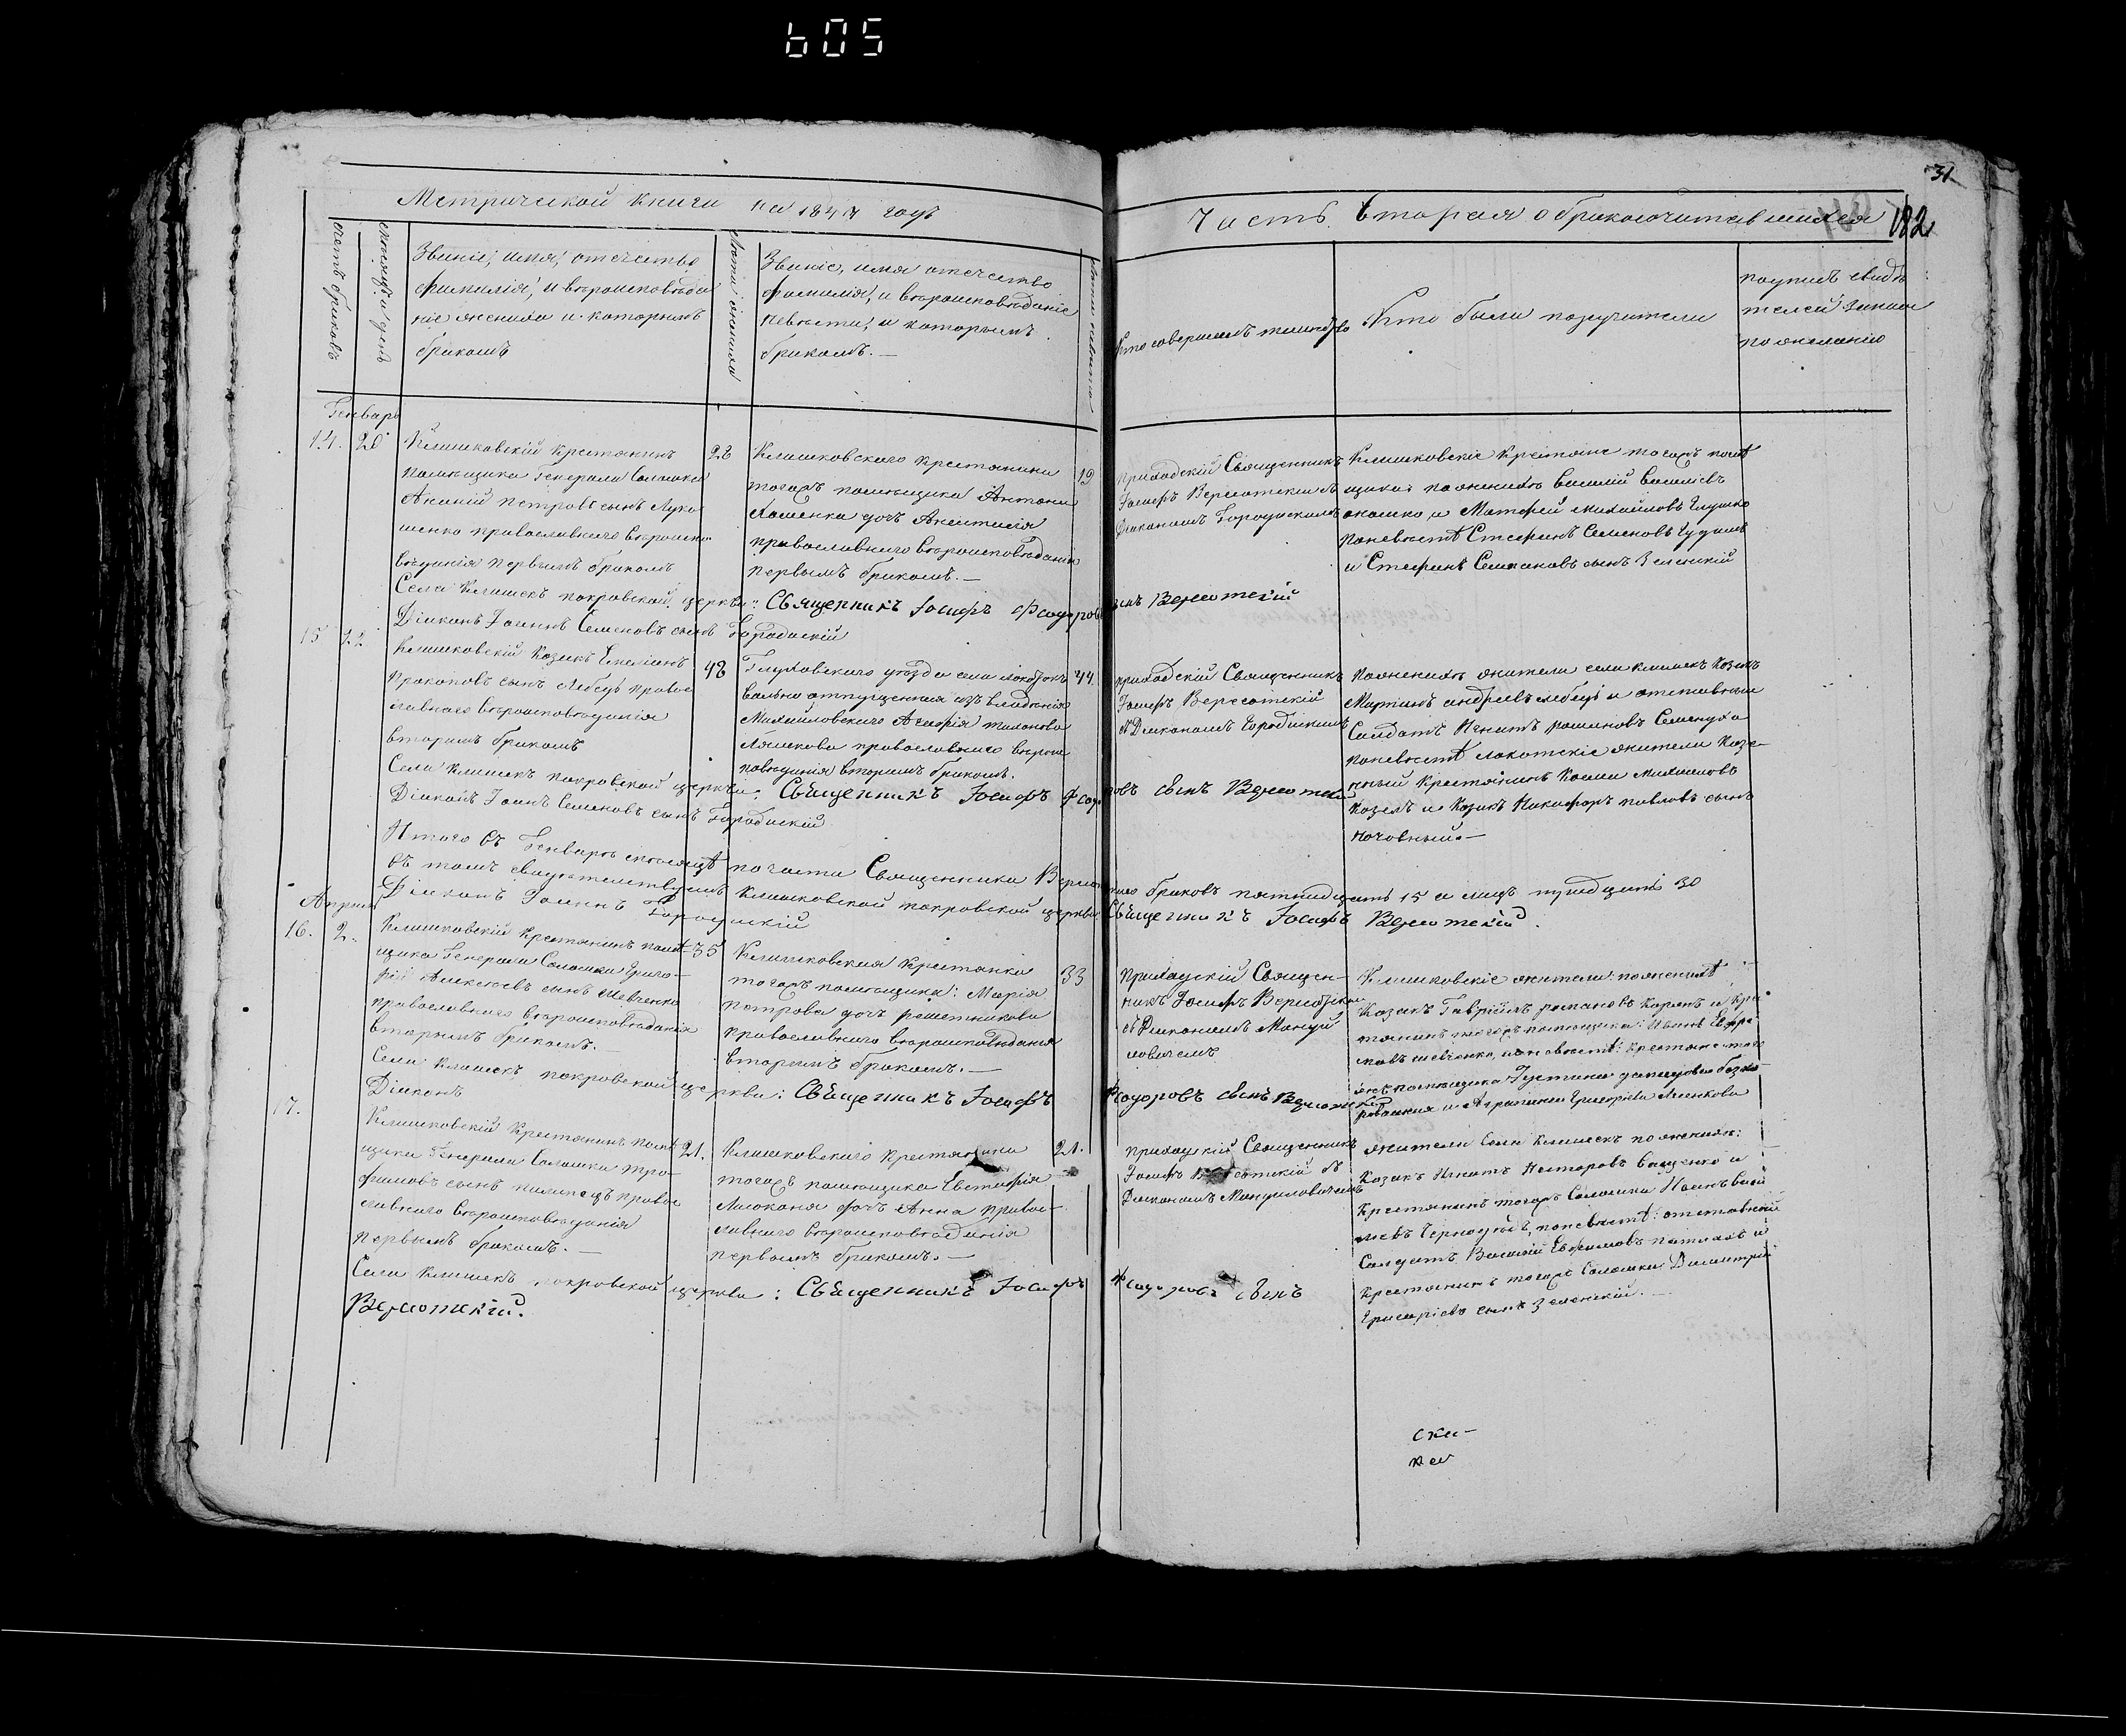 605
31
182
Метрической книги на 1847 годъ
Часть вторая о бракосочитавшихся
счетъ браковъ
месяцъ и день
Званіе, имя, отечество
фамилія, и вероисповеда
ніе жениха и которымъ
бракомъ
Лета жениха
Званіе, имя отечество
фамилія, и вероисповеданіе
невести, и которымъ
бракомъ. —
Лета невести
Кто совершалъ таинство
Кто были поручители
подпись свиде
телей записи
по желанію
Генварь
14. 20
Клишковскій крестянинъ
помещика Генерала Соломки
Ананій Петровъ сынъ Луко
шенко православнаго вероиспо
веданія первымъ бракомъ
22
Клишковского крестянина
тогожъ помещика Антона
дочь
православнаго вероисповеданія
первымъ бракомъ. —
19
приходскій Священникъ
Іосифъ Версотскій съ
Діакономъ Городискимъ
Клишковскіе крестяне тогожъ поме
щика: по женихе Василій Василіевъ
и Матфей Михайловъ Глушко
по невесте Стефанъ Семеновъ
и Стефанъ сынъ Зеленскій
Села Клишекъ покровской церкви: Священникъ Іосифъ Феодоровъ сынъ Версотскій
Діаконъ Іоаннъ Семеновъ сынъ Городискій
15 22
Клишковскій Козакъ Емеліанъ
Прокоповъ сынъ Лебедь право
славнаго вероисповеданія
вторимъ бракомъ
48
Глуховского уезда села
вольно отпущенная изъ владенія
Михайловского Агафія
Ляшкова православнаго вероис
поведанія вторимъ бракомъ.
44.
приходскій Священникъ
Іосифъ Версотскій
съ Діакономъ Городискимъ
по женихе жители села Клишекъ Козакъ
Мартинъ Андреевъ Лебедь и отставной
Солдатъ Игнатъ Романовъ Семендха
по невесте локотскіе жители Казе-
нный крестянинъ Косма Михайловъ
Козелъ и Козакъ Никифоръ Павловъ сынъ
Села Клишекъ покровской церкви: Священникъ Іосифъ Феодоровъ сынъ Версотскій
Діаконъ Іоанъ Семеновъ сынъ Городискій
Итого въ Генваре месяце по части Священника Версотского браковъ пятнадцать 15 а лицъ тридцать 30
въ томъ свидетелствуемъ Клишковской покровской церкви Священникъ Іосифъ Версотскій.
Діаконъ Іоаннъ Городискій
Апрель
16. 2.
Клишковскій крестянинъ поме
щика Генерала Соломки Григо-
рій Алексеевъ сынъ Шевченко
православнаго вероисповеданія
вторымъ бракомъ. —
35
Клишковская крестянка
тогожъ помещика: Марія
Петрова дочь решетникова
православнаго вероисповеданія
вторымъ бракомъ. —
33
приходскій Священ-
никъ Іосифъ Версотскій
съ Діакономъ Манжу
ловичемъ
Клишковскіе жители: по женихе
Козакъ Гавріилъ Романовъ и кре
стянинъ тогожъ помещика: Иванъ Ефре
мовъ Шевченко, по невесте: крестяне того
жъ помещика Густина
и Агрипина Григоріева
Села Клишекъ покровской церкви: Священникъ Іосифъ Феодоровъ сынъ Версотскій
Діаконъ
17.
Клишковскій крестянинъ поме
щика Генерала Соломки Тро-
фимовъ сынъ Пилипецъ право
славнаго вероисповеданія
первымъ бракомъ. —
21.
Клишковского крестянина
тогожъ помещика Евстафія
дочь Анна право-
славнаго вероисповеданія
первымъ бракомъ. —
21.
приходскій Священникъ
Іосифъ Версотскій съ
Діакономъ Манжуловичемъ
жители села Клишекъ по женихе:
Козакъ Игнатъ Несторовъ Ващенко и
крестянинъ тогожъ Соломки Іоанъ
по невесте: отставной
Солдатъ Василій Ефимовъ и
крестянинъ тогожъ Соломки Димитрій
Григоріевъ сынъ Зеленскій. —
Села Клишекъ покровской церкви: Священникъ Іосифъ Феодоровъ сынъ
Версотскій.